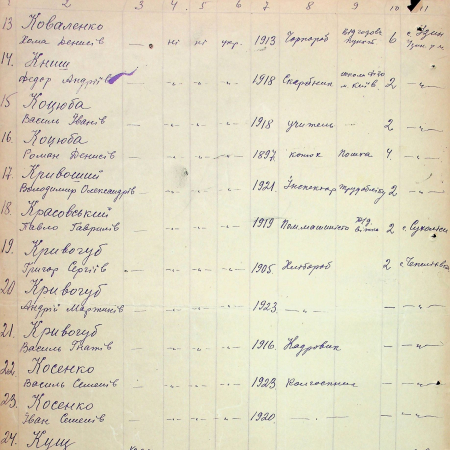 1 2 3 4 5 6 7 8 9 10 11
13 Коваленко
Хома Денисів — ні ні укр. 1913 6 с. Узин
14. Книш
Федор Андріїв — -„- -„- -„- 1918 Скарбник м. Київ 2 -„-
15 Коцюба
Василь Іванів — -„- -„- -„- 1918 учитель — 2 -„-
16. Коцюба
Роман Денисів — -„- -„- -„- 1897 конюх Пошта 4 -„-
17. Кривоший
Володимир Олександрів — -„- -„- -„- 1921 Інспектор 2 -„-
18. Красовський
Павло Гаврилів — -„- -„- -„- 1919 2
19. Кривогуб
Григор Сергіїв — -„- -„- -„- 1905 Хлібороб 2
20 Кривогуб
Андрій Мартинів — -„- -„- -„- 1923 — — — -„-
21. Кривогуб
Василь Гнатів — -„- -„- -„- 1916 Кадровик — — -„-
22. Косенко
Василь Семенів — -„- -„- -„- 1923 Колгоспник — — -„-
23. Косенко
Іван Семенів — -„- -„- -„- 1920 — — — -„-
24. Кущ